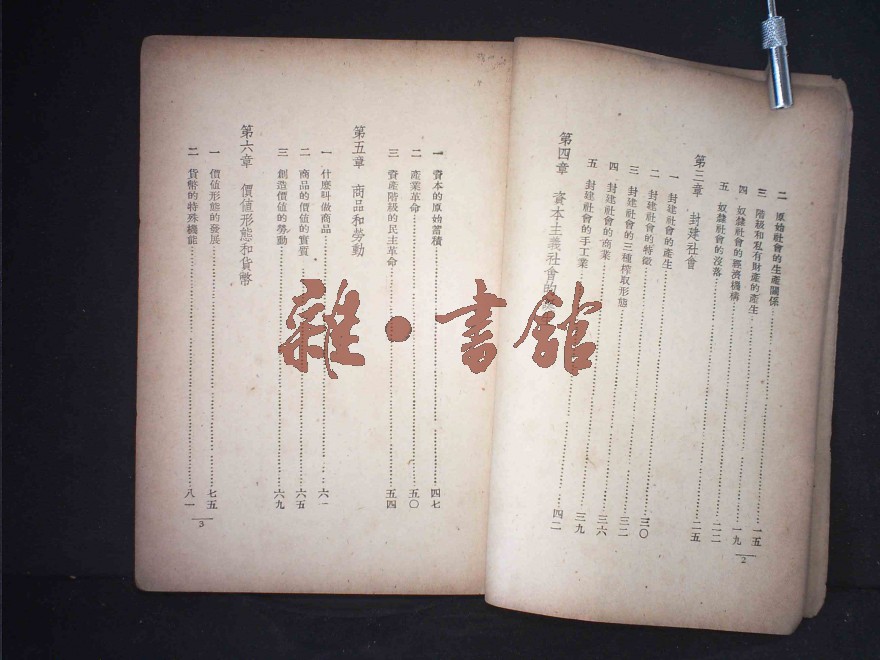 二 原始社會的生產關係……一五
三 階級和私有財產的產生……一九
四 奴隸社會的經濟機構……二二
五 奴隸社會的沒落……二五
第三章 封建社會
一 封建社會的產生……三〇
二 封建社會的特徵……三二
三 封建社會的三種榨取形態……三六
四 封建社會的商業……三九
五 封建社會的手工業……四二
第四章 資本主義社會的
2
一 資本的原始蓄積……四七
二 產業革命……五〇
三 資產階級的民主革命……五四
第五章 商品和勞動
一 什麼叫做商品……六一
二 商品的價值的實質……六五
三 創造價值的勞動……六九
第六章 價值形態和貨幣
一 價值形態的發展……七五
二 貨幣的特殊機能……八一
3
雜·書館